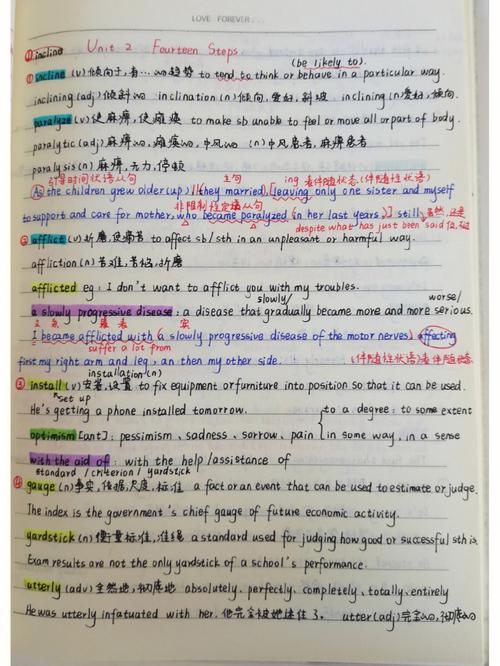 LOVE FOREVER...
① incline Unit 2 Fourteen Steps
(be likely to).
① incline (v) 倾向于,有…的趋势 to tend to think or behave in a particular way.
inclining (adj) 倾斜的 inclination (n) 倾向,爱好,斜坡 inclining (n) 爱好,倾向.
paralyze (v) 使麻痹,使瘫痪 to make sb unable to feel or move all or part of body.
paralytic (adj) 麻痹的,瘫痪的,中风的 (n) 中风患者,麻痹患者
paralysis (n) 麻痹,无力,停顿
引导时间状语从句 主句 ing 表伴随状态.(伴随性状语)
As the children grew older (up) they married, [leaving only one sister and myself
非限制性定语从句
to support and care for mother, who became paralyzed (in her last years.)] still
despite what has just been said
② afflict (v) 折磨,使痛苦 to affect sb/sth in an unpleasant or harmful way.
affliction (n) 苦难,苦恼,折磨
afflicted eg: I don't want to afflict you with my troubles.
slowly/ worse/
a slowly progressive disease: a disease that gradually became more and more serious.
I became afflicted with (a slowly progressive disease of the motor nerves) affecting
suffer a lot from
first my right arm and leg, an then my other side. (伴随性状语)表伴随状态.
installation (n)
③ install (v) 安装,设置 to fix equipment or furniture into position so that it can be used.
set up
He's getting a phone installed tomorrow. to a degree: to some extent
optimism [ant]: pessimism、sadness、sorrow、pain in some way, in a sense
with the aid of: with the help /assistance of
standard / criterion / yardstick
④ gauge (n) 事实,依据,尺度,标准 a fact or an event that can be used to estimate or judge.
The index is the government's chief gauge of future economic activity.
yardstick (n) 衡量标准,准绳 a standard used for judging how good or successful sth is.
Exam results are not the only yardstick of a school's performance.
utterly (adv) 全然地,彻底地 absolutely, perfectly, completely, totally, entirely
He was utterly infatuated with her. 他完全被她迷住了. utter (adj) 完全的,彻底的